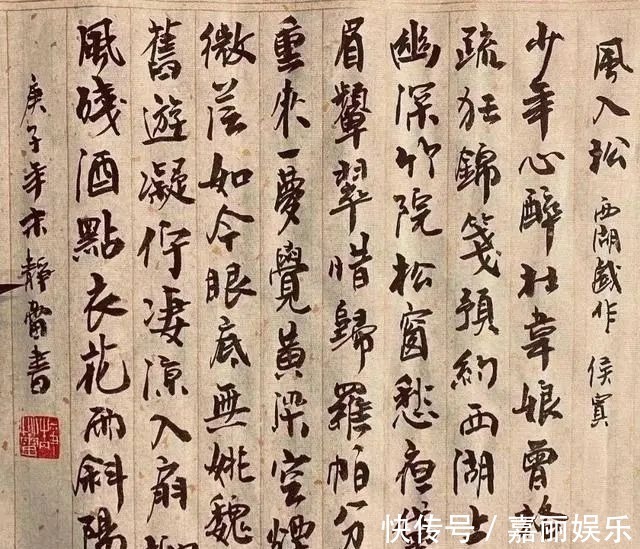 風入松 西湖戲作 侯寘
少年心醉杜韋娘曾格
疏狂錦箋預約西湖上
幽深竹院松窗愁夜
眉顰翠惜歸羅帕分
重來一夢覺黃粱空煙
微茫如今眼底無姚魏
舊遊凝佇淒涼入扇
風殘酒點衣花雨斜陽
庚子年末靜蕾書
快传号/嘉丽娱乐